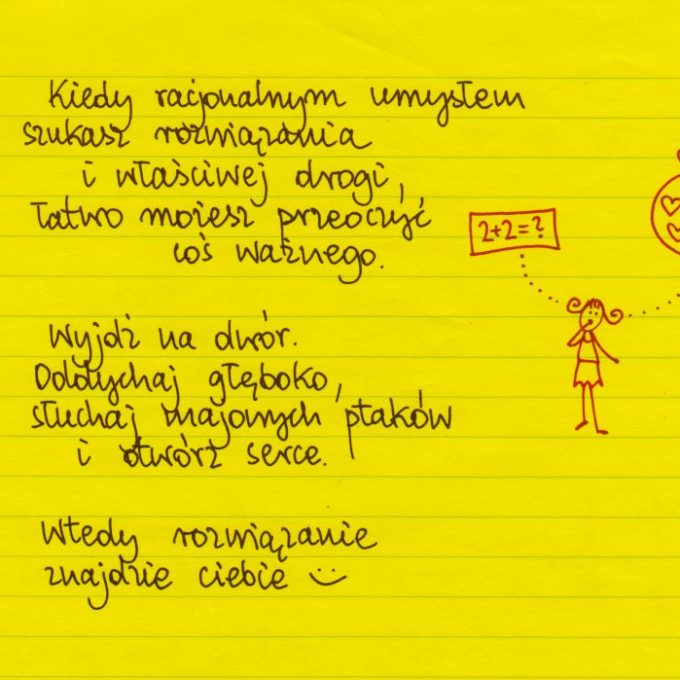 Kiedy racjonalnym umysłem
szukasz rozwiązania
i właściwej drogi,
łatwo możesz przeoczyć
coś ważnego.
2+2=?
Wyjdź na dwór.
Oddychaj głęboko,
słuchaj majowych ptaków
i otwórz serce.
Wtedy rozwiązanie
znajdzie ciebie